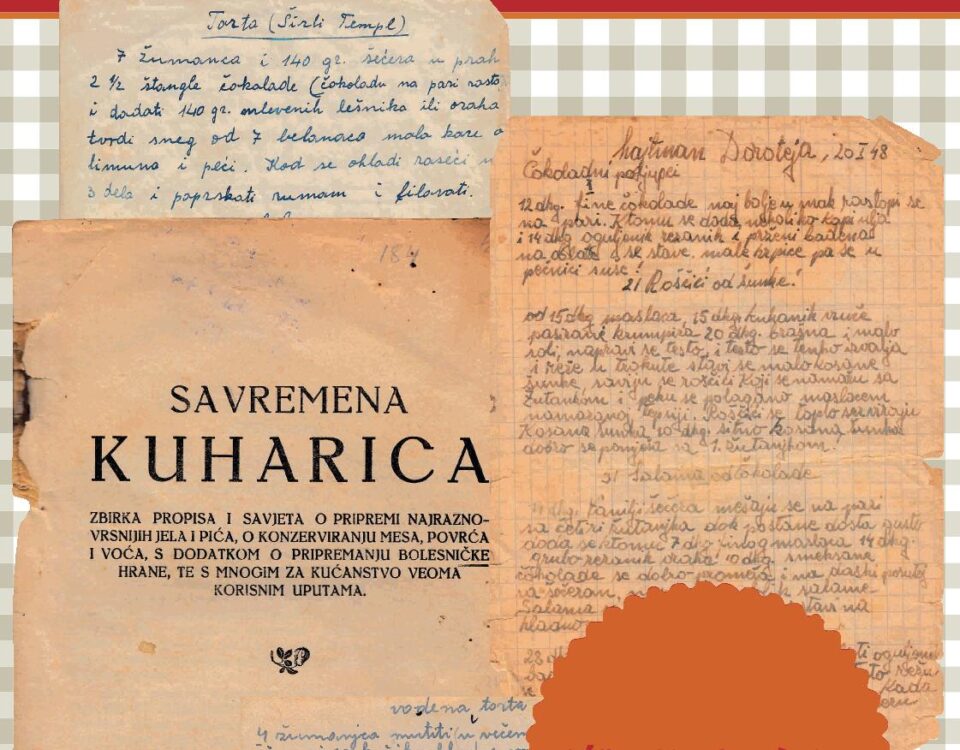 Torta (Širli Templ)
7 žumanca i 140 gr. šećera u prah
2 ½ štangle čokalade (čokoladu na pari rasto
i dodati 140 gr. mlevenih lešnika ili oraha
tvrdi sneg od 7 belanaca malo kore o
limuna i peći. Kad se ohladi raseći n
3 dela i poprskati rumom i filovati.
184
SAVREMENA
KUHARICA
ZBIRKA PROPISA I SAVJETA O PRIPREMI NAJRAZNO-
VRSNIJIH JELA I PIĆA, O KONZERVIRANJU MESA, POVRĆA
I VOĆA, S DODATKOM O PRIPREMANJU BOLESNIČKE
HRANE, TE S MNOGIM ZA KUĆANSTVO VEOMA
KORISNIM UPUTAMA.
Hajtman Doroteja, 20 I 48
Čokoladni poljupci
12 dkg. fine čokolade naj bolje u mak rastopi se
na pari. K tomu se doda nekoliko kapi ulja
i 14 dkg oguljenih rezanih i prženi badema
na oblate se stave male krpice pa se u
pećnici suše.
2) Roščići od šunke!
od 15 dkg maslaca, 15 dkg. kuhanih vruće
pasirane krumpira 20 dkg. brašna i malo
soli, napravi se testo, i testo se tenko izvalja
i reže u trokute stavi se malo kosane
šunke, saviju se roščići koji se namažu sa
žutankom i peku se polagano maslacem
namazanoj tepsiji. Roščići se toplo serviraju
Kosana šunka 10 dkg. sitno kosana šunka
dobro se pomješa sa 1. žutanjkom!
3) Salama od čokolade
dkg. šećera mešaju se na pari
sa četiri žutanjka dok postane dosta gusto
doda se k tomu 7 dkg finog maslaca 14 dkg.
grubo rezanih oraha 10 dkg. omekšane
čokolade se dobro promeša i na daski posutoj
sa šećerom, salame
Salama stavi na
hladno
28
vodena torta
4 žumanjca mutiti u većem